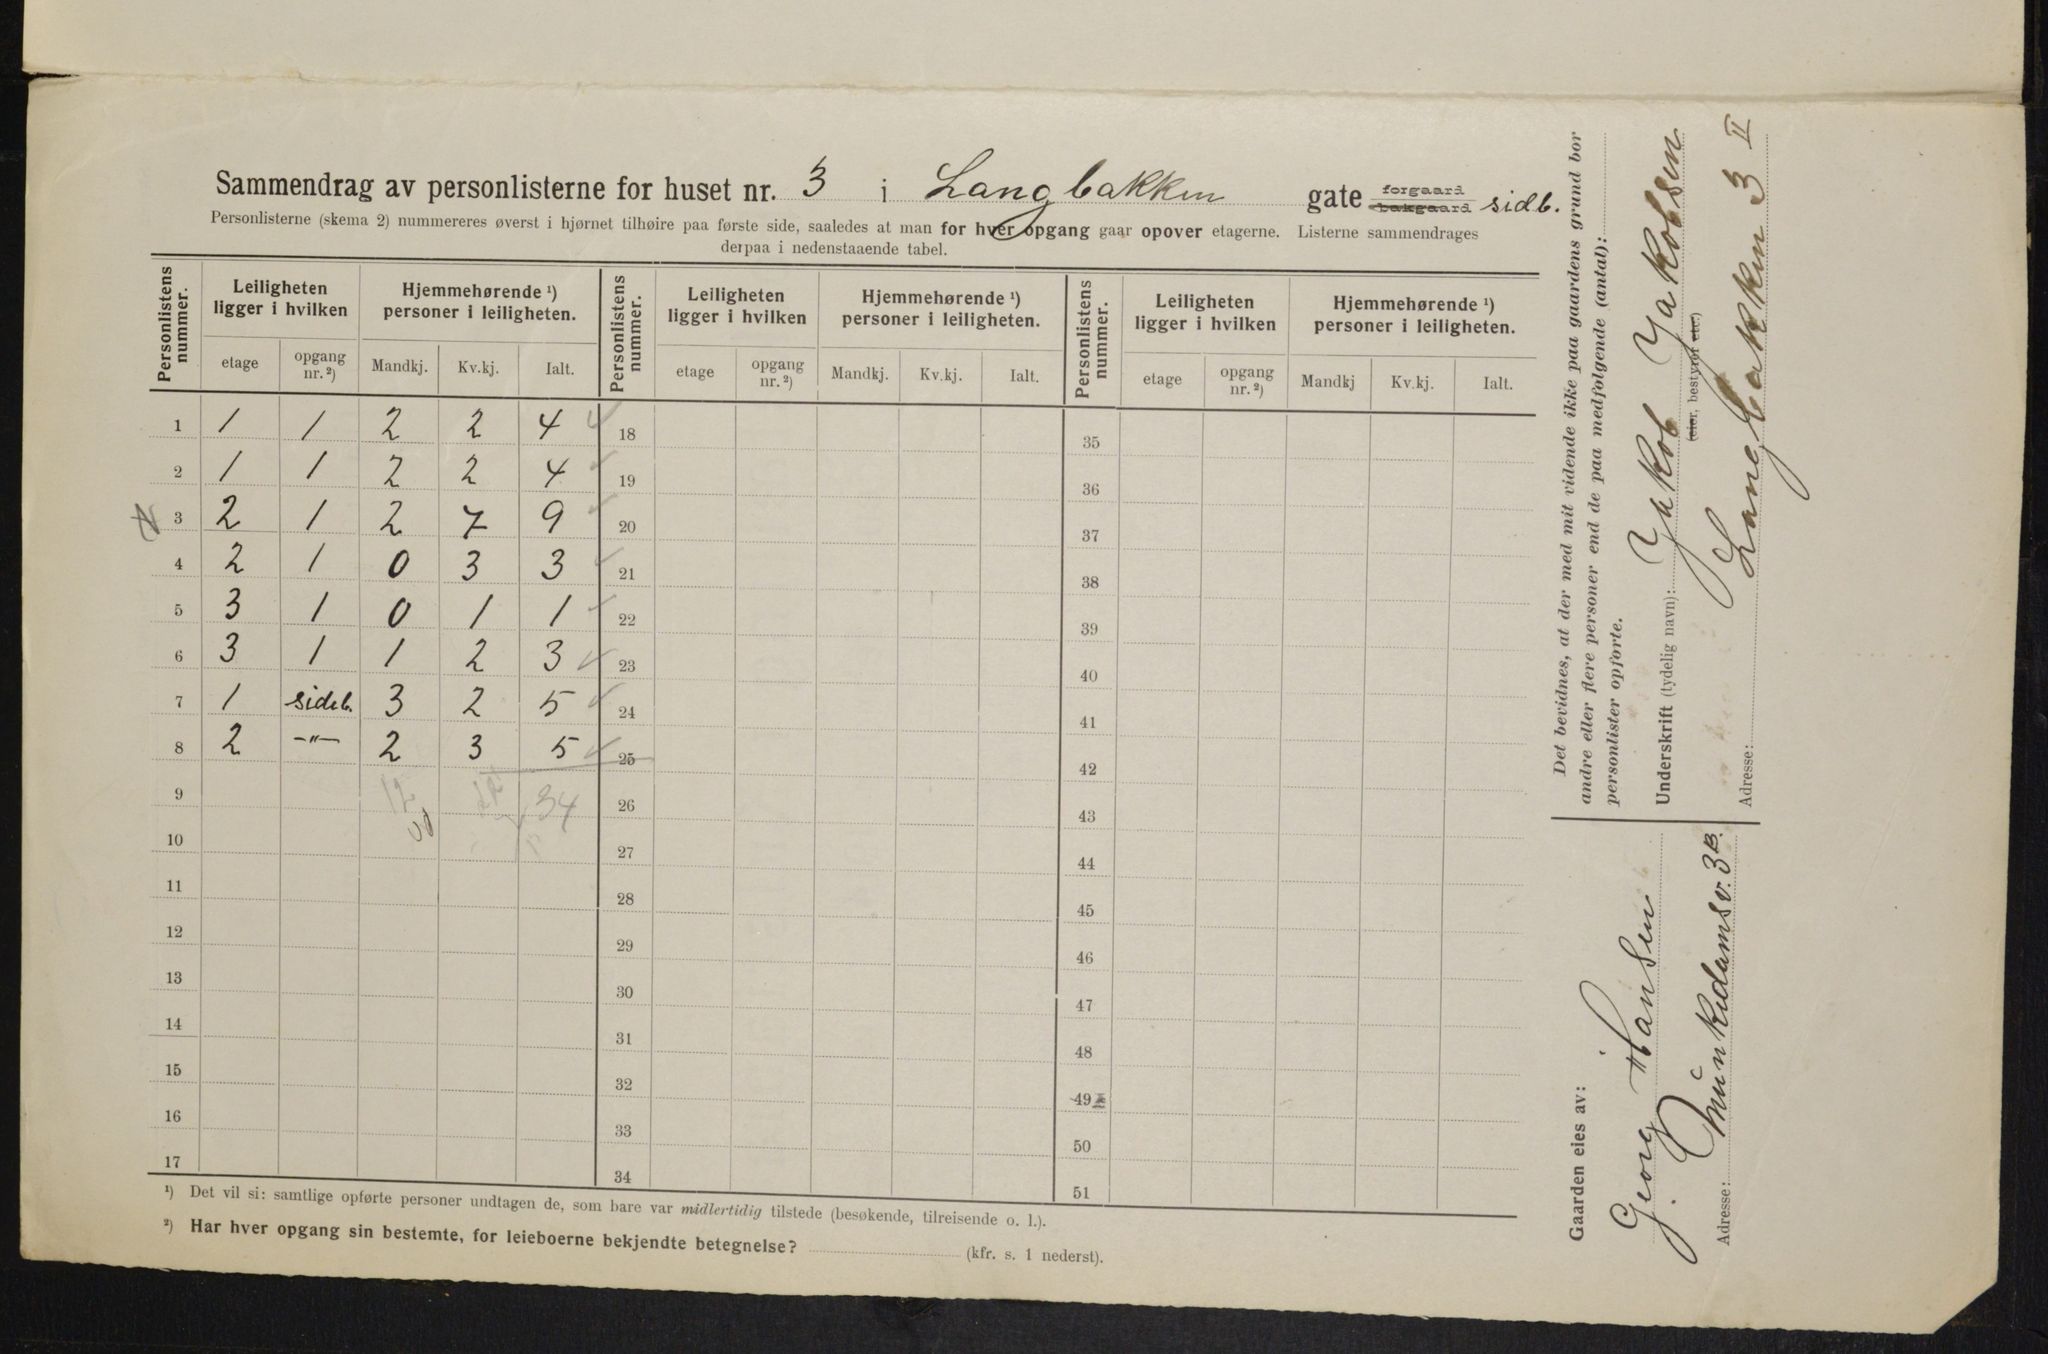 Sammendrag av personlisterne for huset nr. 3 i Langbakken gate forgaard bakgaard sidb.
Personlisterne (skema 2) nummereres øverst i hjørnet tilhøire paa første side, saaledes at man for hver opgang gaar opover etagerne. Listerne sammendrages
derpaa i nedenstaaende tabel.
Personlistens nummer. Leiligheten ligger i hvilken Hjemmehørende ¹) personer i leiligheten. Personlistens nummer. Leiligheten ligger i hvilken Hjemmehørende ¹) personer i leiligheten. Personlistens nummer. Leiligheten ligger i hvilken Hjemmehørende ¹) personer i leiligheten.
etage opgang nr. ²) Mandkj. Kv.kj. Ialt. etage opgang nr. ²) Mandkj. Kv.kj. Ialt. etage opgang nr. ²) Mandkj Kv.kj. Ialt.
1 1 1 2 2 4 18 35
2 1 1 2 2 4 19 36
3 2 1 2 7 9 20 37
4 2 1 0 3 3 21 38
5 3 1 0 1 1 22 39
6 3 1 1 2 3 23 40
7 1 sideb. 3 2 5 24 41
8 2 -"- 2 3 5 25 42
9 12 34 26 43
10 27 44
11 28 45
12 29 46
13 30 47
14 31 48
15 32 49
16 33 50
17 34 51
¹) Det vil si: samtlige opførte personer undtagen de, som bare var midlertidig tilstede (besøkende, tilreisende o. l.).
²) Har hver opgang sin bestemte, for leieboerne bekjendte betegnelse? (kfr. s. 1 nederst).
Det bevidnes, at der med mit vidende ikke paa gaardens grund bor
andre eller flere personer end de paa medfølgende (antal):
personlister opførte.
Underskrift (tydelig navn): Jakob Jakobsen
(eier, bestyrer etc.)
Adresse: Langbakken 3 II
Gaarden eies av:
Georg Hansen
Adresse: Munkedamsv. 3B.